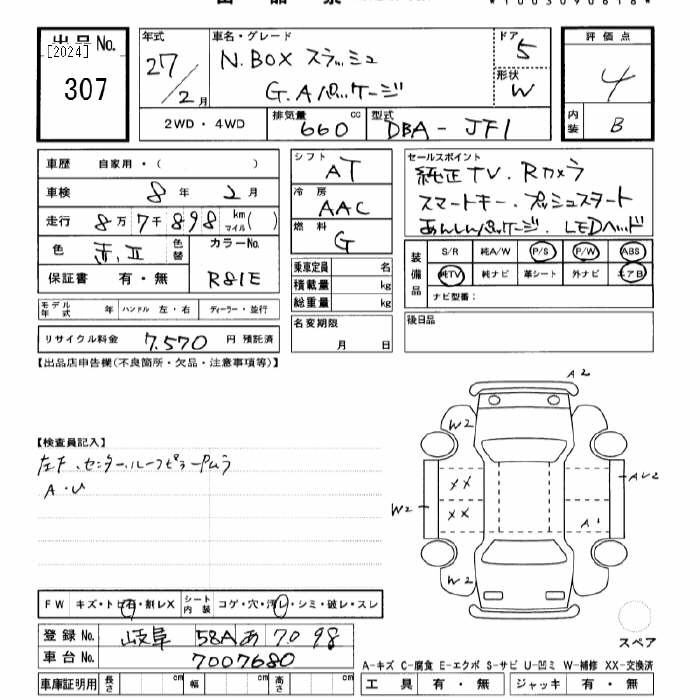 [2024]
出品No.
307
年式
27/2月
車名・グレード
N.BOX スラッシュ
G.Aパッケージ
ドア
5
形状
W
評価点
4
内装
B
2WD・4WD
排気量
660 cc
型式
DBA-JF1
車歴 自家用・( )
車検 8年2月
走行 8万7千898 km マイル( )
色 赤,II 色替
カラーNo.
R81E
保証書 有・無
モデル年式 年 ハンドル 左・右 ディーラー・並行
リサイクル料金 7,570 円 預託済
シフト
AT
冷房
AAC
燃料
G
乗車定員 名
積載量 kg
総重量 kg
名変期限
月 日
セールスポイント
純正TV.Rカメラ
スマートキー.プッシュスタート
あんしんパッケージ.LEDヘッド
装備品
S/R 純A/W P/S P/W ABS
純TV 純ナビ 革シート 外ナビ エアB
ナビ型番:
後日品
【出品店申告欄(不良箇所・欠品・注意事項等)】
【検査員記入】
A・U
A2
W2
XX
XX
W2
AU2
A1
W2
FW キズ・トビ石・割レX シート内装 コゲ・穴・汚レ・シミ・破レ・スレ
登録No. 岐阜 58A あ 70 98
車台No. 7007680
車庫証明用 長さ cm 幅 cm 高さ cm
スペア
A-キズ C-腐食 E-エクボ S-サビ U-凹ミ W-補修 XX-交換済
工具 有・無 ジャッキ 有・無